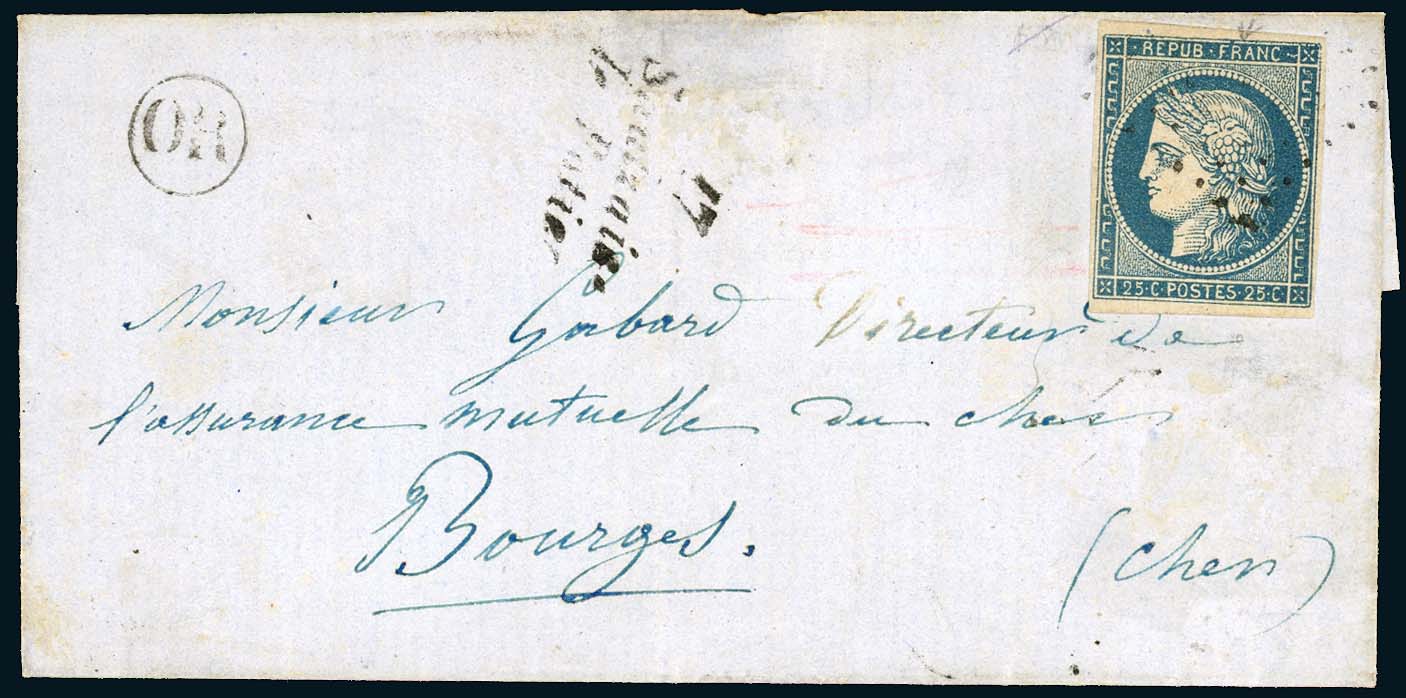 OR
17
le
REPUB·FRANC
25·C·POSTES·25·C
Monsieur Gabard Directeur de
l'assurance mutuelle du cher
Bourges.
(Cher)